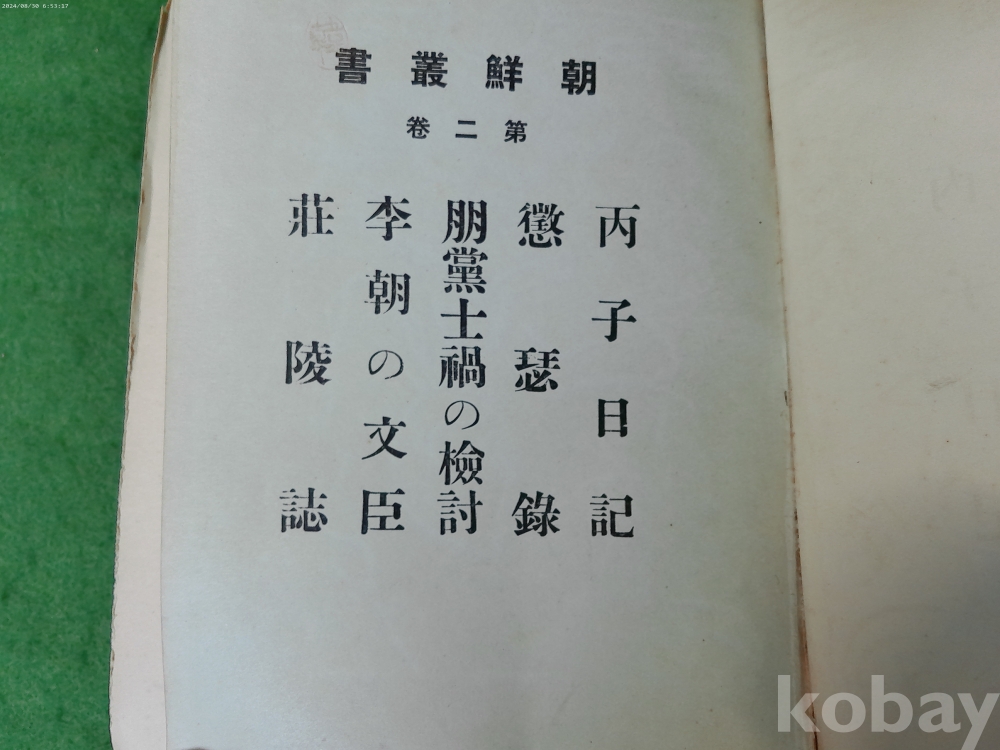 2024/08/30 6:53:17
朝鮮叢書
第二卷
丙子日記
懲瑟錄
朋黨士禍の檢討
李朝の文臣
莊陵誌
kobay